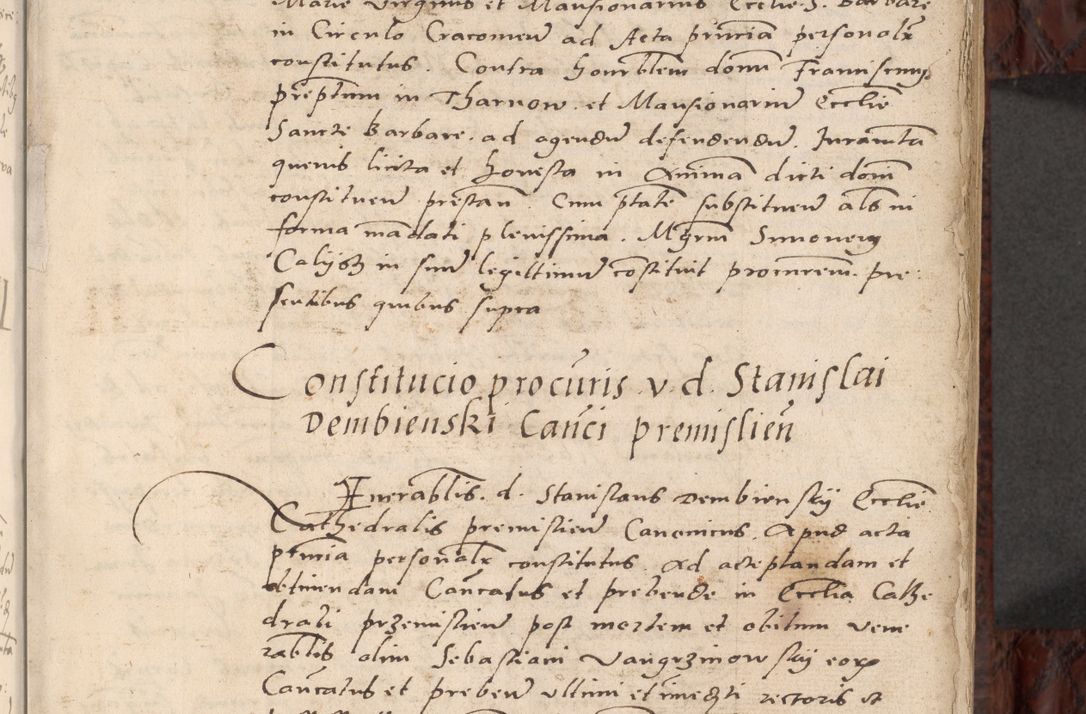 Marie Virginis et Mansionarius Ecclie S. Barbare
in Circulo Cracomen ad Acta pnria personalr
constitutus. Contra honrblem domn Franciscum
prepftum in Tharnow. et Mansionarium Ecclie
Sancte Barbare. ad agendu defendendu. Juramta
quevis licita et honesta in Animã dicti domi
constituen prestan. Cum ptate substituen als in
forma mãdati plenissima. Mgrm Simonem
Calijsz in suu legittimu cõstituit procurem. pre
sentibus quibus supra
Constitucio procuris v. d. Stanislai
Dembienski Canci premislien
Venerablis. d. Stanislaus Dembienskij Ecclie
Cathedralis premislien Canonicus. Apud acta
pnria personalr constitutus. Ad acceptandam et
obtinendam Cancatus et prebende in Ecclia Cathe
drali przemislien post mortem et obitum vene
rablis olim Sebastiani Vangrzinowskij eor
Cancatus et preben ultimi et imedti rectoris et